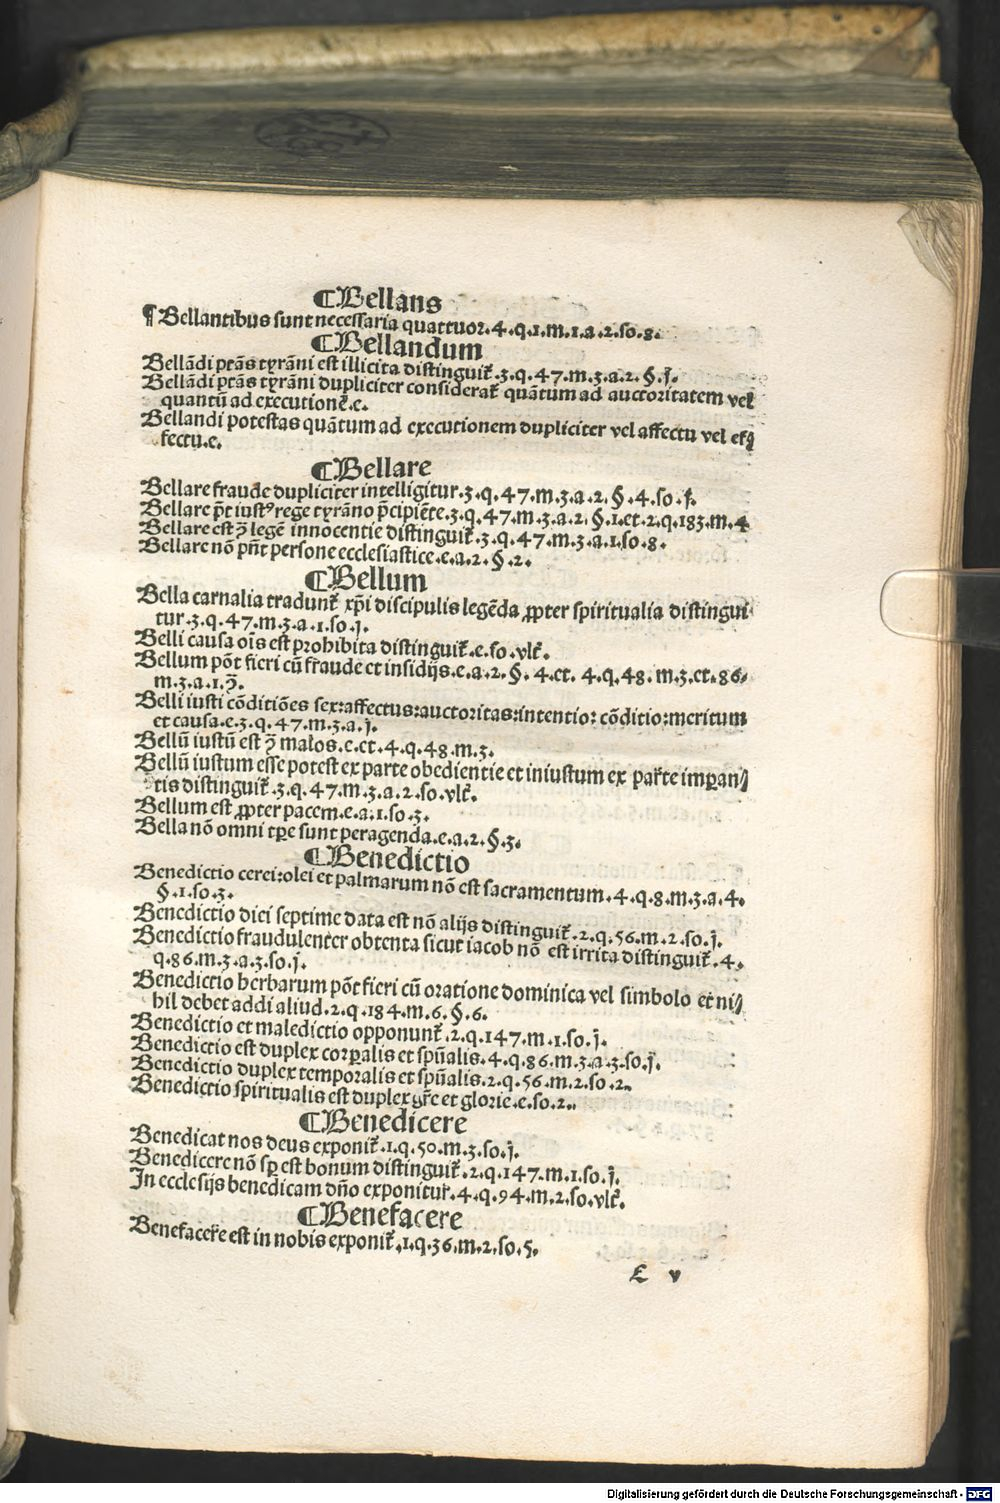 ¶Bellans
¶ Bellantibus sunt necessaria quattuor.4.q.1.m.1.a.2.so.8.
¶Bellandum
Bellādi ptās tyrāni est illicita distinguit̃.3.q.47.m.3.a.2.§.j.
Bellādi ptās tyrāni dupliciter considerat̃ quātum ad auctoritatem vel
quantū ad executionē.e.
Bellandi potestas quātum ad executionem dupliciter vel affectu vel ef⸗
fectu.e.
¶Bellare
Bellare fraude dupliciter intelligitur.3.q.47.m.3.a.2.§.4.so.j.
Bellare p̄t iustꝰ rege tyrāno p̄cipiēte.3.q.47.m.3.a.2.§.1.et.2.q.183.m.4
Bellare est ꝯ legē innocentie distinguit̃.3.q.47.m.3.a.1.so.8.
Bellare nō pn̄t persone ecclesiastice.e.a.2.§.2.
¶Bellum
Bella carnalia tradunt̃ xp̄i discipulis legēda ꝓpter spiritualia distingui
tur.3.q.47.m.3.a.1.so.j.
Belli causa oīs est prohibita distinguit̃.e.so.vlt̃.
Bellum pōt fieri cū fraude et insidijs.e.a.2.§.4.et.4.q.48.m.3.et.86.
m.3.a.1.ꝯ̄.
Belli iusti cōditiōes sex:affectus:auctoritas:intentio: cōditio:meritum
et causa.e.3.q.47.m.3.a.j.
Bellū iustū est ꝯ malos.e.et.4.q.48.m.3.
Bellū iustum esse potest ex parte obedientie et iniustum ex parte imꝑan⸗
tis distinguit̃.3.q.47.m.3.a.2.so.vlt̃.
Bellum est ꝓpter pacem.e.a.1.so.3.
Bella nō omni tꝑe sunt peragenda.e.a.2.§.3.
¶Benedictio
Benedictio cerei:olei et palmarum nō est sacramentum.4.q.8.m.3.a.4.
§.1.so.3.
Benedictio diei septime data est nō alijs distinguit̃.2.q.56.m.2.so.j.
Benedictio fraudulenter obtenta sicut iacob nō est irrita distinguit̃.4.
q.86.m.3.a.3.so.j.
Benedictio herbarum pōt fieri cū oratione dominica vel simbolo et ni⸗
hil debet addi aliud.2.q.184.m.6.§.6.
Benedictio et maledictio opponunt̃.2.q.147.m.1.so.j.
Benedictio est duplex corꝑalis et spūalis.4.q.86.m.3.a.3.so.j.
Benedictio duplex temporalis et spūalis.2.q.56.m.2.so.2.
Benedictio spiritualis est duplex gr̄e et glorie.e.so.2.
¶Benedicere
Benedicat nos deus exponit̃.1.q.50.m.3.so.j.
Benedicere nō sꝑ est bonum distinguit̃.2.q.147.m.1.so.j.
In ecclesijs benedicam dño exponitur.4.q.94.m.2.so.vlt̃.
¶Benefacere
Benefacere est in nobis exponit̃.1.q.36.m.2.so.5.
E v
Digitalisierung gefördert durch die Deutsche Forschungsgemeinschaft - DFG